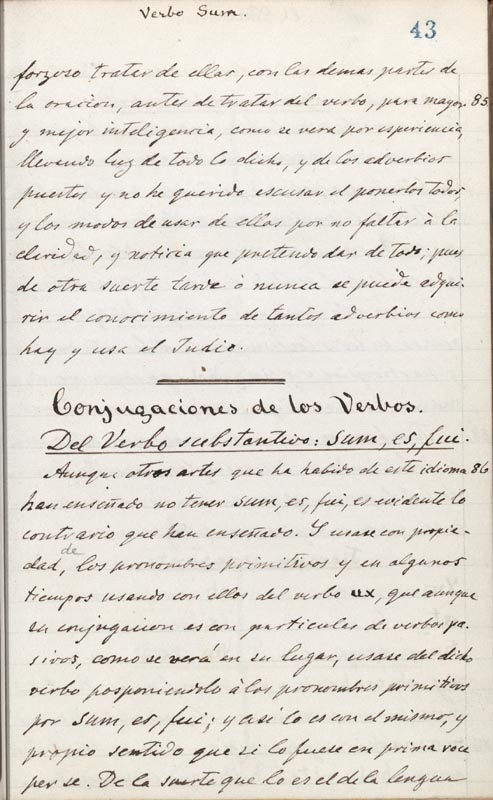 Verbo Sum.
43
forzoso tratar de ellas, con las demas partes de
la oracion, antes de tratar del verbo, para mayor 85
y mejor inteligencia, como se vera por esperiencia,
llevando luz de todo lo dicho, y de los adverbios
puestos y no he querido escusar el ponerlos todos,
y los modos de usar de ellos por no faltar à la
claridad, y noticia que pretendo dar de todo; pues
de otra suerte tarde ò nunca se pueda adqui-
rir el conocimiento de tantos adverbios como
hay y usa el Indio.
Conjugaciones de los Verbos.
Del Verbo substantivo: Sum, es, fui.
Aunque otros artes que ha habido de este idioma 86
han enseñado no tener sum, es, fui, es evidente lo
contrario que han enseñado. Y usase con propie-
dad, de los pronombres primitivos y en algunos
tiempos usando con ellos del verbo ux, que aunque
su conjugacion es con particulas de verbos pa-
sivos, como se verá en su lugar, usase del dicho
verbo posponiendolo à los pronombres primitivos
por sum, es, fui; y asi lo es con el mismo, y
propio sentido que si lo fuese en prima voce
per se. De la suerte que lo es el de la lengua